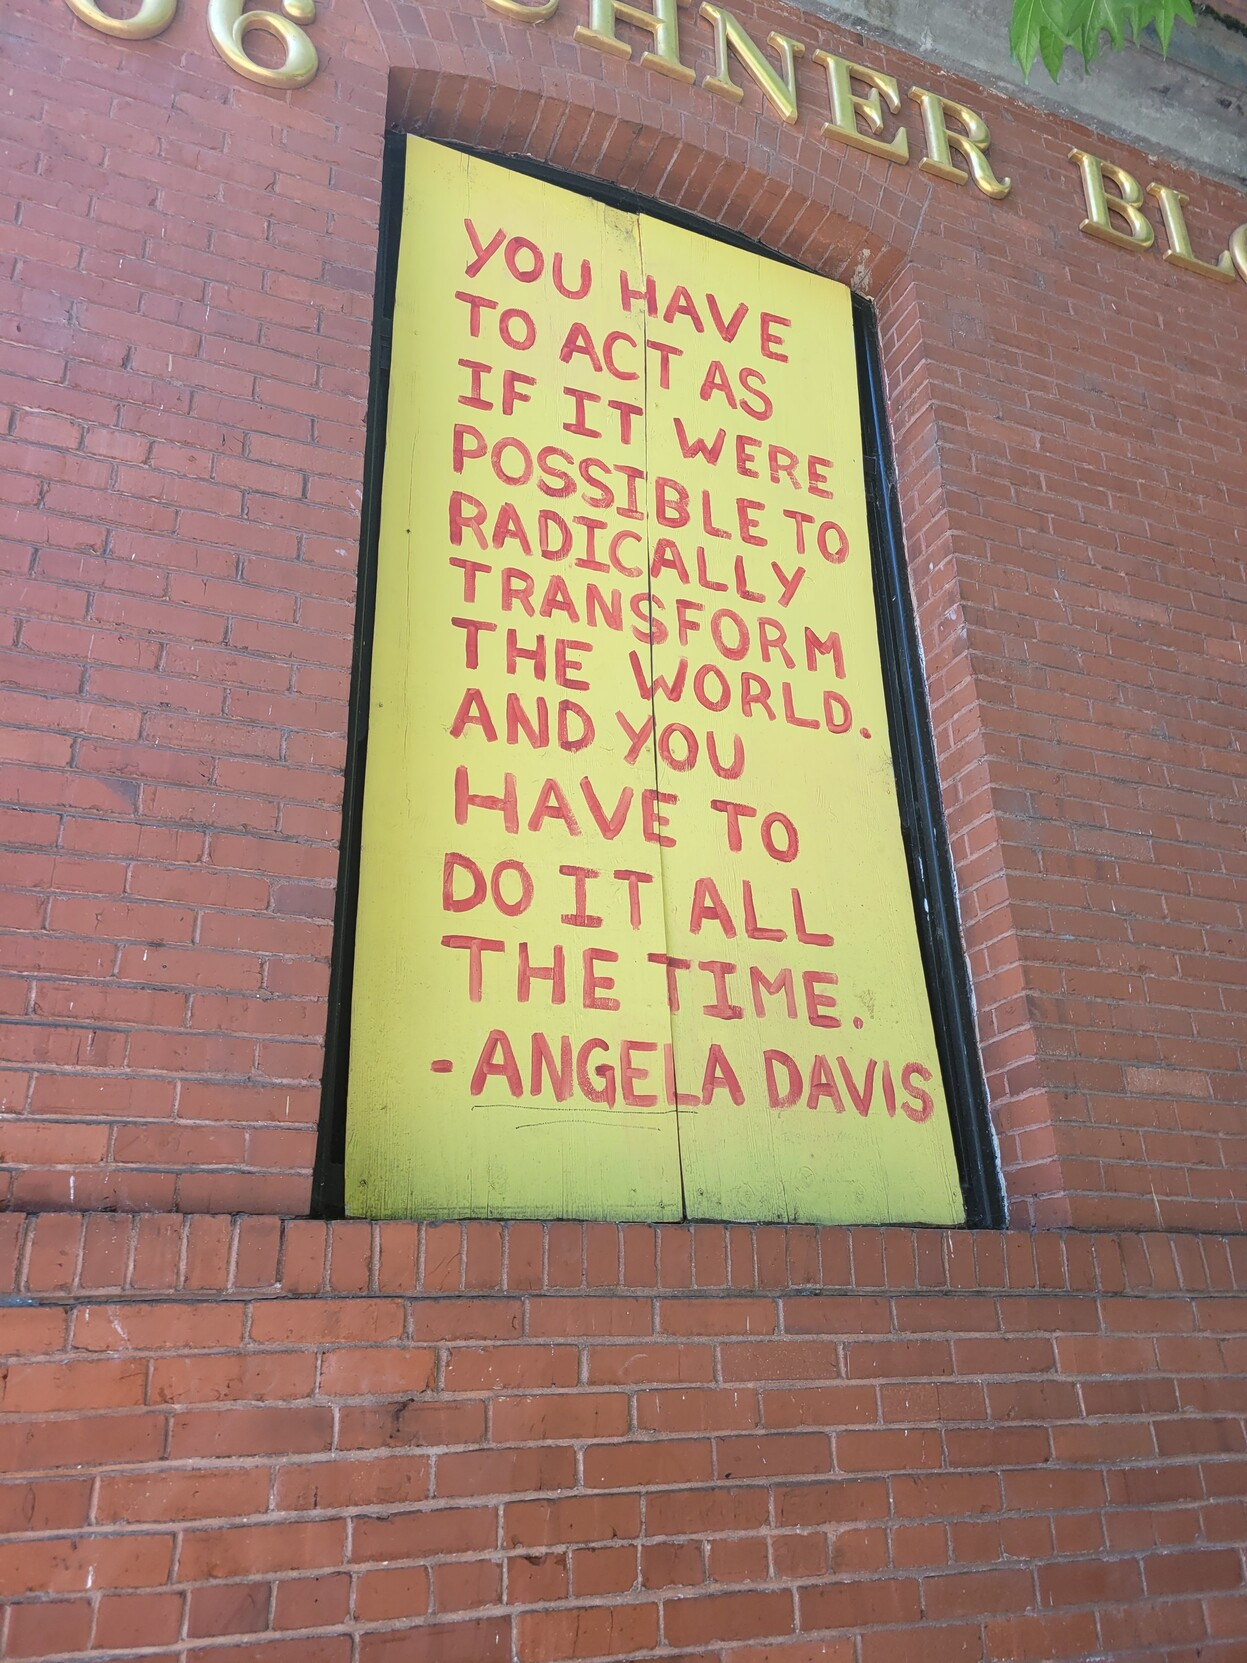 06 HNER BLO
YOU HAVE
TO ACT AS
IF IT WERE
POSSIBLE TO
RADICALLY
TRANSFORM
THE WORLD.
AND YOU
HAVE TO
DO IT ALL
THE TIME.
- ANGELA DAVIS